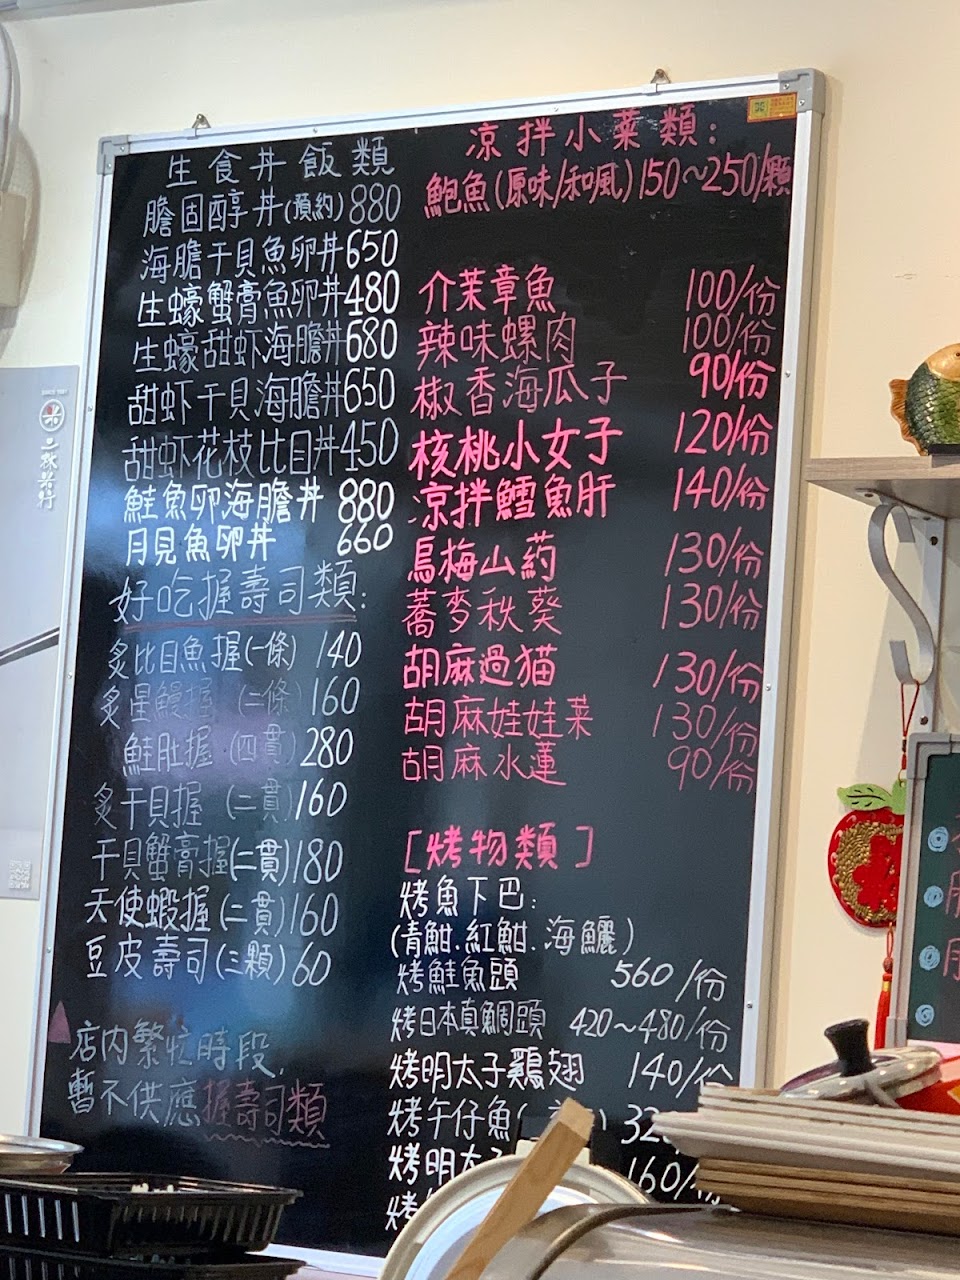 生食丼飯類
膽固醇丼(預約)880
海膽干貝魚卵丼650
生蠔蟹膏魚卵丼480
生蠔甜虾海膽丼680
甜虾干貝海膽丼650
甜虾花枝比目丼450
鮭魚卵海膽丼 880
月見魚卵丼 660
好吃握壽司類:
炙比目魚握(一條) 140
炙星鰻握 (二條) 160
鮭肚握 (四貫) 280
炙干貝握 (二貫) 160
干貝蟹膏握(二貫)180
天使蝦握(二貫)160
豆皮壽司(三顆)60
店内繁忙時段,
暫不供應握壽司類
涼拌小菜類:
鮑魚(原味/和風)150~250/顆
介茉章魚 100/份
辣味螺肉 100/份
椒香海瓜子 90/份
核桃小女子 120/份
涼拌鱈魚肝 140/份
烏梅山药 130/份
蕎麥秋葵 130/份
胡麻過猫 130/份
胡麻娃娃菜 130/份
胡麻水蓮 90/份
[烤物類]
烤魚下巴:
(青魽.紅魽.海鱺)
烤鮭魚頭 560/份
烤日本真鯛頭 420~480/份
烤明太子鷄翅 140/份
烤午仔魚( ) 32
烤明太 160/份
烤
二林米行